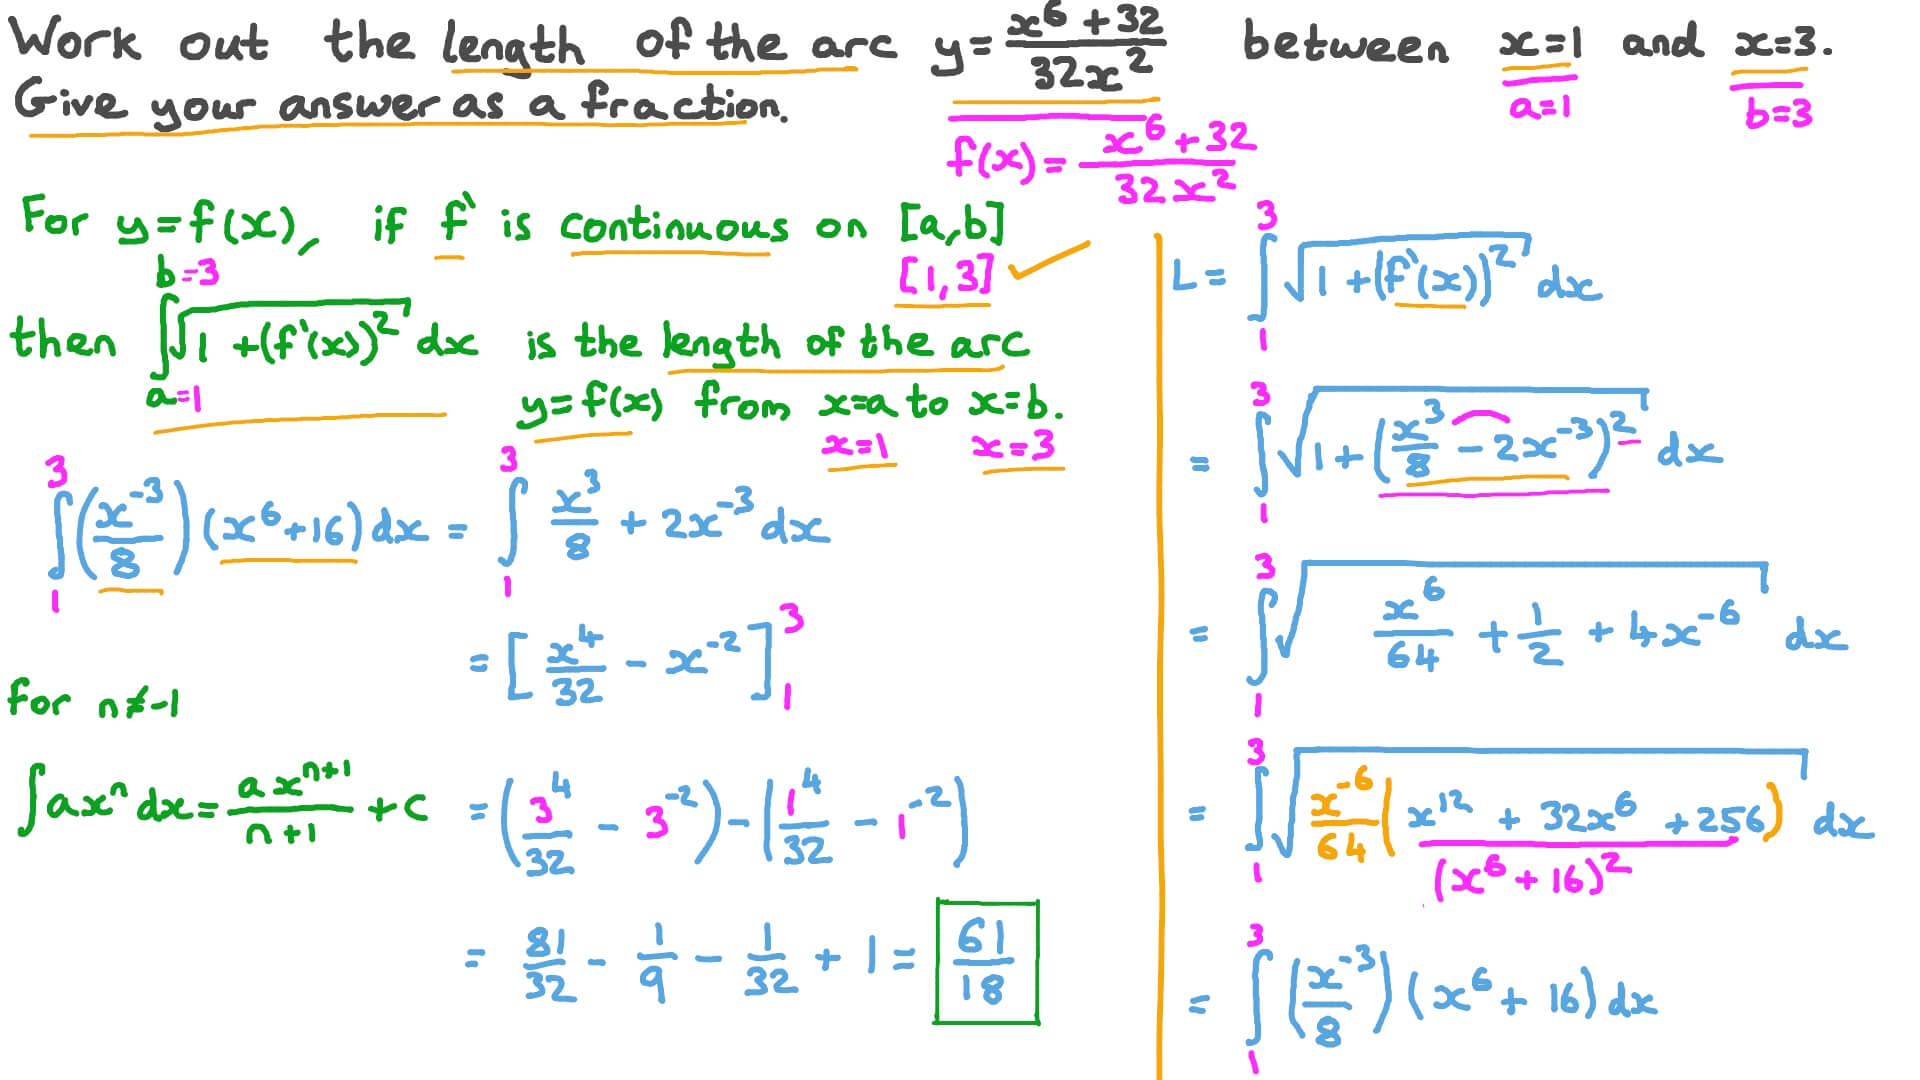 Work out the length of the arc y = (x^6 + 32)/(32x^2) between x=1 and x=3.
a=1 b=3
Give your answer as a fraction.
f(x) = (x^6 + 32)/(32x^2)
For y=f(x), if f' is continuous on [a,b]
[1,3] ✓
then ∫_{a=1}^{b=3} √(1 + (f'(x))^2) dx is the length of the arc
y=f(x) from x=a to x=b.
x=1 x=3
∫_1^3 (x^-3/8)(x^6+16) dx = ∫_1^3 x^3/8 + 2x^-3 dx
= [x^4/32 - x^-2]_1^3
for n≠-1
∫ax^n dx = ax^(n+1)/(n+1) + c
= (3^4/32 - 3^-2) - (1^4/32 - 1^-2)
= 81/32 - 1/9 - 1/32 + 1 = 61/18
L = ∫_1^3 √(1 + (f'(x))^2) dx
= ∫_1^3 √(1 + (x^3/8 - 2x^-3)^2) dx
= ∫_1^3 √(x^6/64 + 1/2 + 4x^-6) dx
= ∫_1^3 √(x^-6/64 (x^12 + 32x^6 + 256)) dx
(x^6 + 16)^2
= ∫_1^3 (x^-3/8)(x^6 + 16) dx